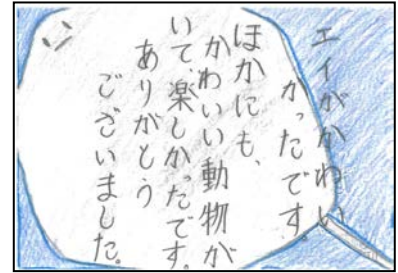 エイがかわい
かったです。
ほかにも、
かわいい動物が
いて、楽しかったです。
ありがとう
ございました。